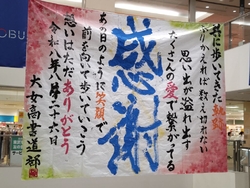 共に歩いてきた
ふりかえれば数え切れない
思い出が溢れ出す
たくさんの愛で繋がってる
感謝
あの日のように笑顔で
前を向いて歩いていこう
想いはただありがとう
令和 年 月二十六日
大女高書道部